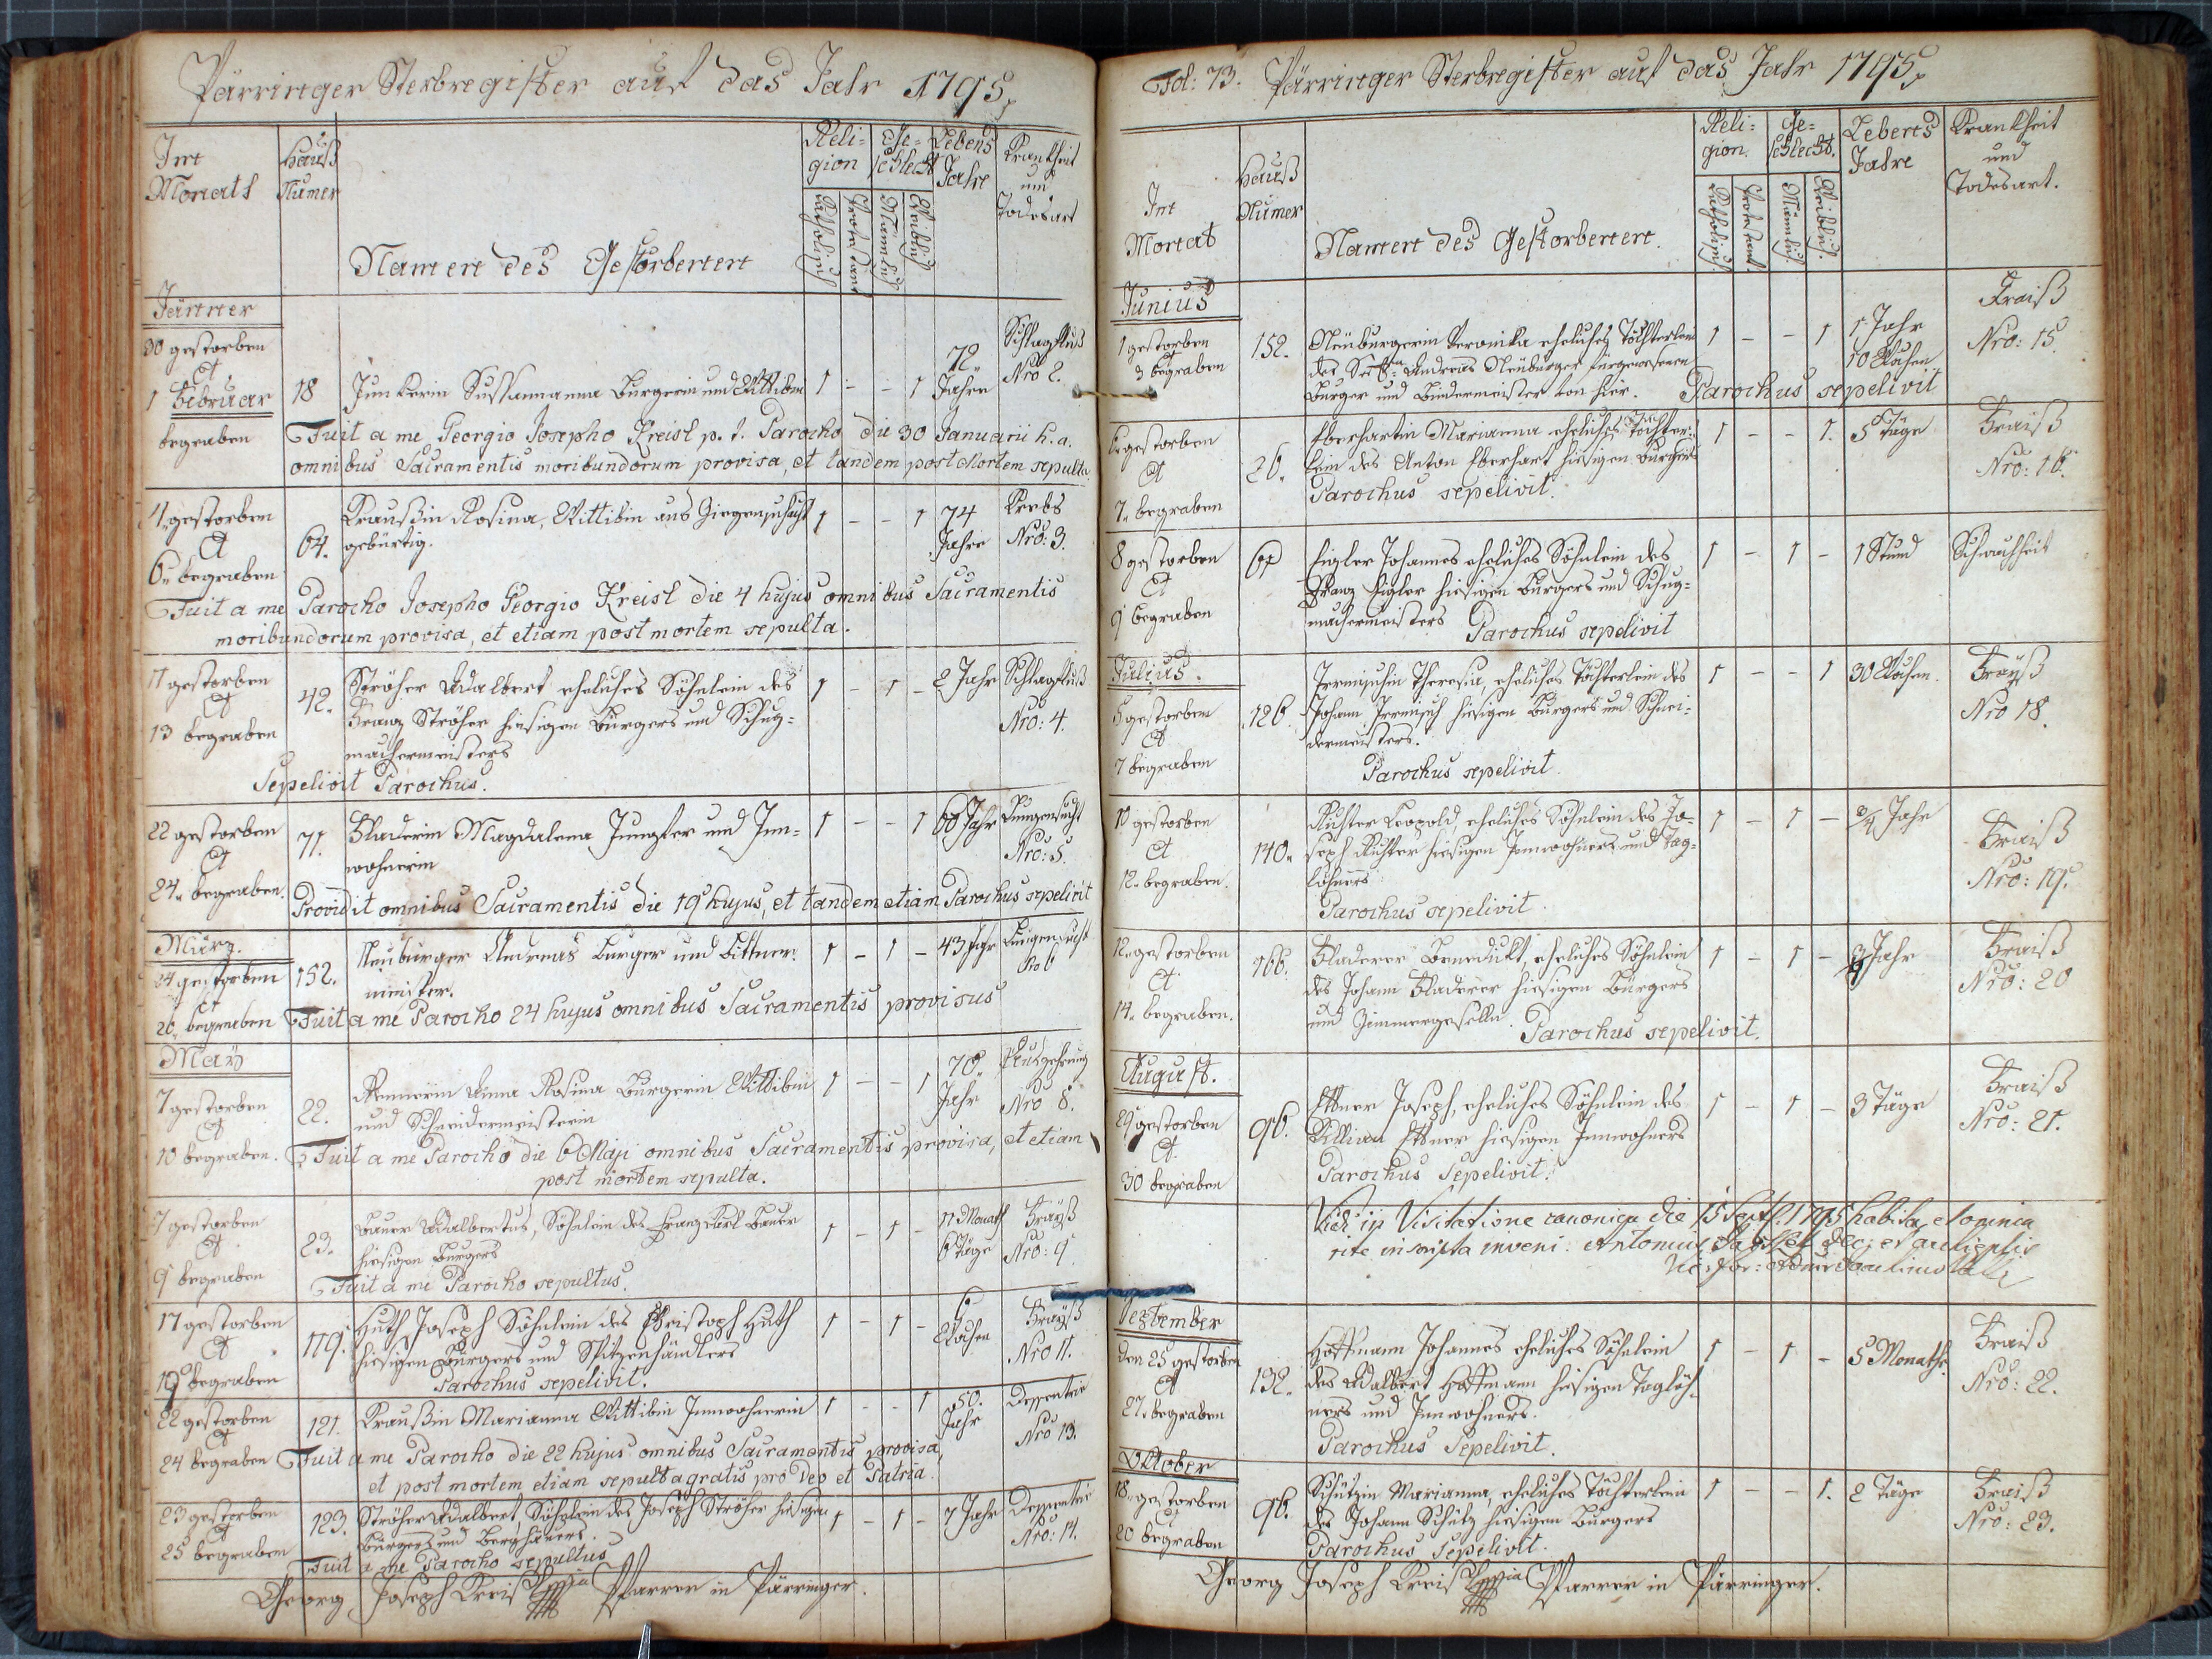 Pärringer Sterbregister auf das Jahr 1795
Im
Monath
Hauß
Numer
Namen des Gestorbenen
Reli=
gion
Katholisch
Protestant
Ge=
schlecht
Mannlich
Weiblich
Lebens
Jahre
Krankheit
und
Todesart
Jänner
30 gestorben
et
1 Februar
begraben
18
Junkerin Sussannanna Burgerin und Wittibin
1 - - 1
72
Jahre
Schlagfluß
Nro 2.
Fuit a me Georgio Josepho Kreisl p. t. Parocho die 30 Januarii h. a.
omnibus Sacramentis moribundorum provisa, et tandem post Mortem sepulta.
4 gestorben
et
6 begraben
64.
Kraußin Rosina, Wittibin aus Ziegenschacht
gebürtig.
1 - - 1
74
Jahre
Krebs
Nro: 3.
Fuit a me Parocho Josepho Georgio Kreisl die 4 hujus omnibus Sacramentis
moribundorum provisa, et etiam post mortem sepulta.
11 gestorben
et
13 begraben
42.
Ströher Adalbert eheliches Söhnlein des
Franz Ströher hiesigen Burgers und Schug=
machermeisters
1 - 1 -
2 Jahr
Schlagfluß
Nro: 4.
Sepelivit Parochus.
22 gestorben
et
24. begraben.
71.
Bladerin Magdalena Jungfer und Inn=
wohnerin
1 - - 1
60 Jahr
Lungensucht
Nro: 5.
Providit omnibus Sacramentis die 19 hujus, et tandem etiam Parochus sepelivit
März.
24 gestorben
et
26 begraben
152.
Neuburger Andreas Burger und Bittner=
meister.
1 - 1 -
43 Jahr
Lungensucht
No 6
Fuit a me Parocho 24 hujus omnibus Sacramentis provisus
May
7 gestorben
et
10 begraben.
22.
Rennerin Anna Rosina Burgerin Wittibin
und Schneidermeisterin
1 - - 1
70.
Jahr
Auszehrung
Nro 8.
Fuit a me Parocho die 6 Maji omnibus Sacramentis provisa, et etiam
post mortem sepulta.
7 gestorben
et
9 begraben
23.
Bauer Adalbertus, Söhnlein des Franz Karl Bauer
hiesigen Burgers
1 - 1 -
11 Monath
6 Täge
Frayß
Nro: 9.
Fuit a me Parocho sepultus.
17 gestorben
et
19 begraben
119.
Huth Joseph Söhnlein des Christoph Huth
hiesigen Burgers und Spitzenhändlers
1 - 1 -
6
Wochen
Frayß
Nro 11.
Parochus sepelivit.
22 gestorben
et
24 begraben
121.
Kraußin Marianna Wittibin Innwohnerin
1 - - 1
50.
Jahr
Dessenterie
Nro 13.
Fuit a me Parocho die 22 hujus omnibus Sacramentis provisa,
et post mortem etiam sepulta gratis pro Deo et Patria.
23 gestorben
et
25 begraben
123.
Ströher Adalbert, Söhnlein des Joseph Ströher hiesigen
Burgers und Berghäuers.
1 - 1 -
7 Jahr
Dessenterie
Nro: 14.
Fuit a me Parocho sepultus
Georg Joseph Kreisl Pfarrer in Pärringer.
Fol: 73. Pärringer Sterbregister auf das Jahr 1795
Im
Monat
Hauß
Numer
Namen des Gestorbenen.
Reli=
gion.
Katholisch.
Protestant.
Ge=
schlecht.
Männlich.
Weiblich.
Lebens
Jahre
Krankheit
und
Todesart.
Junius
1 gestorben
et
3 begraben
152.
Neuburgerin Veronika eheliches Töchterlein
des Andreas Neuburger fürgewesenen
Burger und Bindermeister von hier.
1 - - 1
1 Jahr
10 Wochen
Fraiß
Nro: 15.
Parochus sepelivit
6 gestorben
et
7. begraben
26.
Eberhartin Marianna eheliches Töchter=
lein des Anton Eberhart hiesigen Burgers
Parochus sepelivit.
1 - - 1.
5 Täge
Fraiß
Nro: 16.
8 gestorben
et
9 begraben
61
Eigler Johannes eheliches Söhnlein des
Franz Eigler hiesigen Burgers und Schug=
machermeisters
Parochus sepelivit
1 - 1 -
1 Stund
Schwachheit
Julius.
5 gestorben
et
7 begraben
126
Irmischin Theresia, eheliches Töchterlein des
Johann Irmisch hiesigen Burgers und Schnei=
dermeisters.
Parochus sepelivit.
1 - - 1
30 Wochen.
Frayß
Nro 18.
10 gestorben
et
12. begraben.
140.
Richter Leopold, eheliches Söhnlein des Jo=
seph Richter hiesigen Innwohners und Tag=
löhners
Parochus sepelivit.
1 - 1 -
3/4 Jahr
Fraiß
Nro: 19.
12. gestorben
et
14. begraben.
166.
Bladerer Benedikt, eheliches Söhnlein
des Johann Bladerer hiesigen Burgers
und Zimmergesellen.
Parochus sepelivit.
1 - 1 -
3 Jahr
Fraiß
Nro: 20
August.
29 gestorben
et
30 begraben
96.
Ettner Joseph, eheliches Söhnlein des
Killian Ettner hiesigen Innwohners
Parochus Sepelivit.
1 - 1 -
3 Täge
Fraiß
Nro: 21.
Vidi in Visitatione canonica die 15 Sept. 1795 habita, et omnia
rite inscripta inveni. Antonius
September
den 25 gestorben
et
27. begraben
132.
Hoffmann Johannes eheliches Söhnlein
des Adalbert Hoffmann hiesigen Taglöh=
ners und Innwohners.
Parochus Sepelivit.
1 - 1 -
5 Monathe
Fraiß
Nro: 22.
October
18. gestorben
et
20 begraben
96.
Schützin Marianna, eheliches Töchterlein
des Johann Schütz hiesigen Burgers
Parochus Sepelivit.
1 - - 1.
2 Täge
Fraiß
Nro: 23.
Georg Joseph Kreisl Pfarrer in Pärringer.